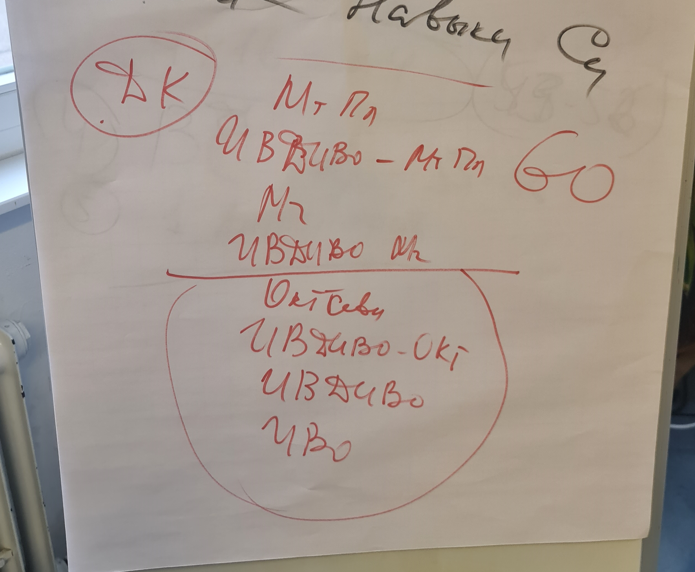 Навыки Си
ДК
Мт Пл
ИВДИВО - Мт Пл 60
Мг
ИВДИВО Мг
ИВДИВО - ОКТ
ИВДИВО
ИВО